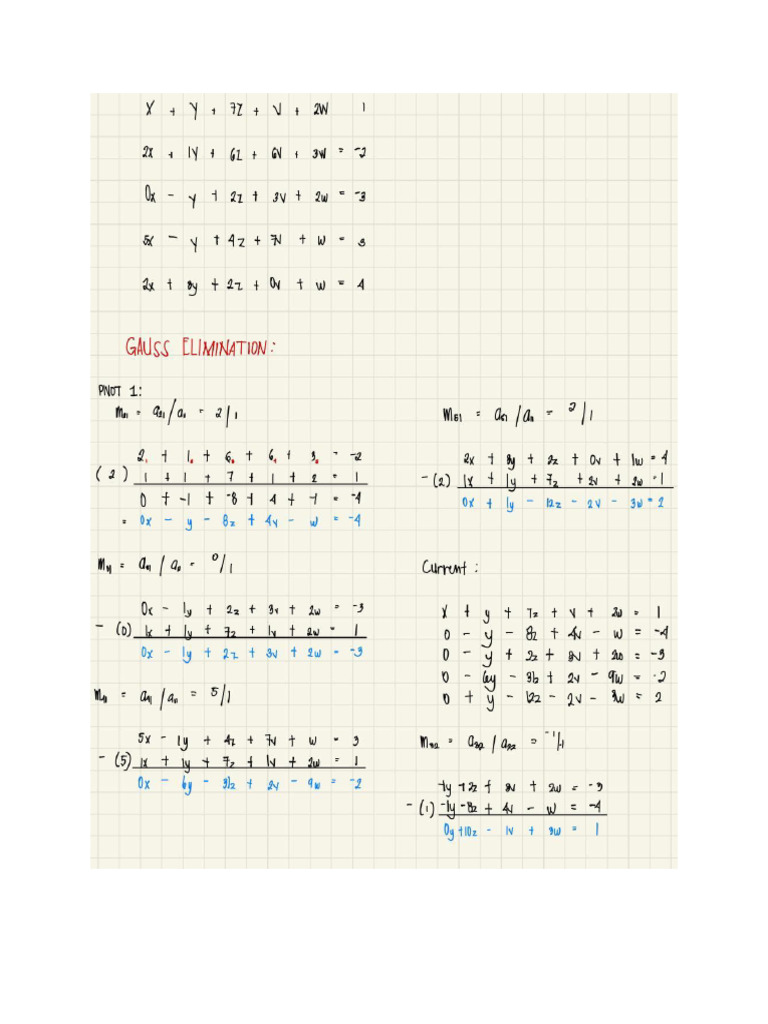 X + y + 7z + V + 2W 1
2x + 1y + 6z + 6v + 3w = -2
0x - y + 2z + 3v + 2w = -3
5x - y + 4z + 7v + w = 3
2x + 3y + 2z + 0v + w = 4
GAUSS ELIMINATION:
PIVOT 1:
m₂₁ = a₂₁/a₁₁ = 2/1
2 + 1 + 6 + 6 + 3 = -2
(2) 1 + 1 + 7 + 1 + 2 = 1
0 + -1 + -8 + 4 + -1 = -4
= 0x - y - 8z + 4v - w = -4
m₃₁ = a₃₁/a₁₁ = 0/1
0x - 1y + 2z + 3v + 2w = -3
- (0) 1x + 1y + 7z + 1v + 2w = 1
0x - 1y + 2z + 3v + 2w = -3
m₄₁ = a₄₁/a₁₁ = 5/1
5x - 1y + 4z + 7v + w = 3
- (5) 1x + 1y + 7z + 1v + 2w = 1
0x - 6y - 31z + 2v - 9w = -2
m₅₁ = a₅₁/a₁₁ = 2/1
2x + 3y + 2z + 0v + 1w = 4
- (2) 1x + 1y + 7z + 2v + 2w = 1
0x + 1y - 12z - 2v - 3w = 2
Current:
x + y + 7z + v + 2w = 1
0 - y - 8z + 4v - w = -4
0 - y + 2z + 3v + 2w = -3
0 - 6y - 31z + 2v - 9w = -2
0 + y - 12z - 2v - 3w = 2
m₃₂ = a₃₂/a₂₂ = -1/1
-1y + 2z + 3v + 2w = -3
- (1) -1y - 8z + 4v - w = -4
0y + 10z - 1v + 3w = 1